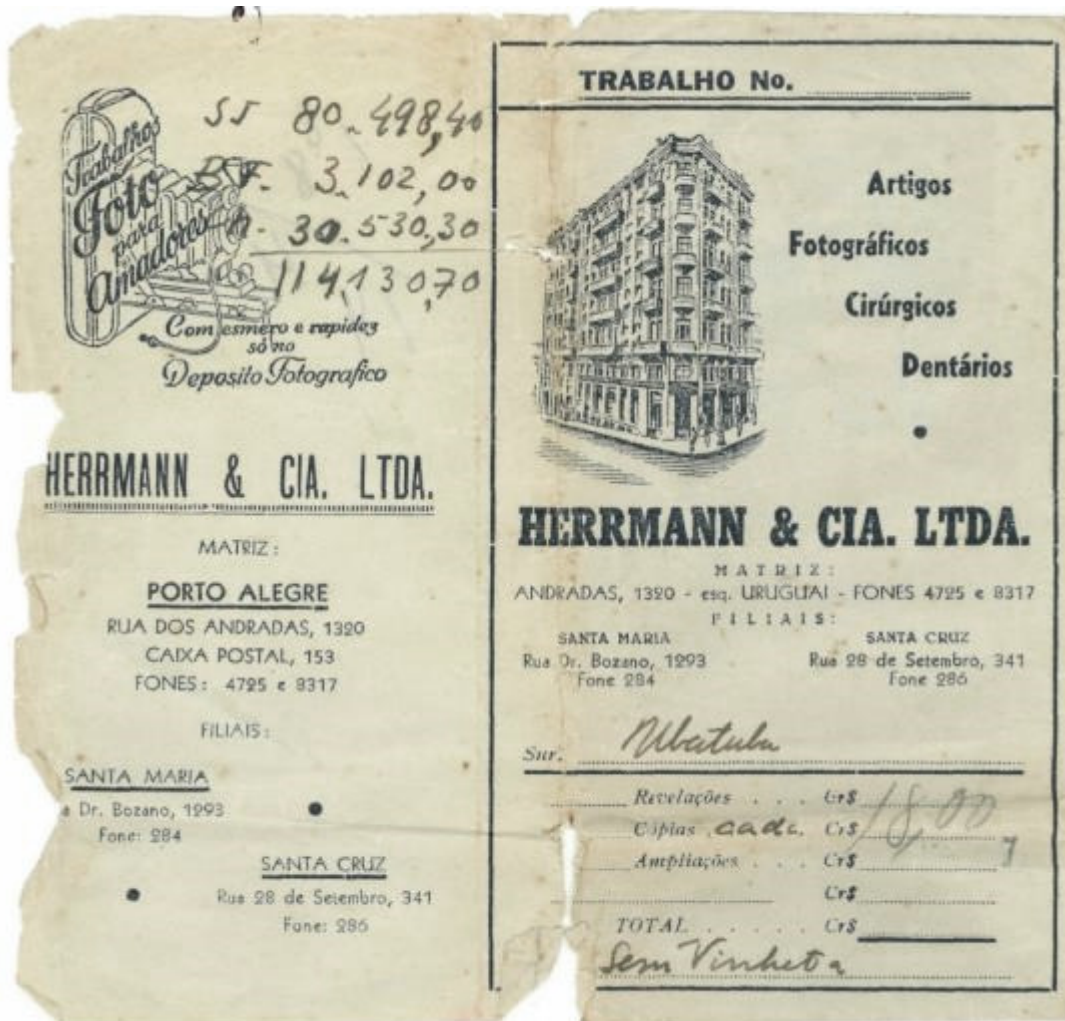 SS 80.498,40
3.102,00
30.530,30
114,130,70
Trabalhos
Foto
para
Amadores
Com esmero e rapidez
só no
Deposito Fotografico
HERRMANN & CIA. LTDA.
MATRIZ:
PORTO ALEGRE
RUA DOS ANDRADAS, 1320
CAIXA POSTAL, 153
FONES: 4725 e 8317
FILIAIS:
SANTA MARIA
a Dr. Bozano, 1293
Fone: 284
SANTA CRUZ
Rua 28 de Setembro, 341
Fone: 286
TRABALHO No.
Artigos
Fotográficos
Cirúrgicos
Dentários
HERRMANN & CIA. LTDA.
MATRIZ:
ANDRADAS, 1320 - esq. URUGUAI - FONES 4725 e 8317
FILIAIS:
SANTA MARIA SANTA CRUZ
Rua Dr. Bozano, 1293 Rua 28 de Setembro, 341
Fone 284 Fone 286
Snr. Ubatuba
Revelações . . . Cr$ 18,00
Cópias cada. Cr$
Ampliações . . . Cr$
Cr$
TOTAL . . . . . Cr$
Sem Vinheta